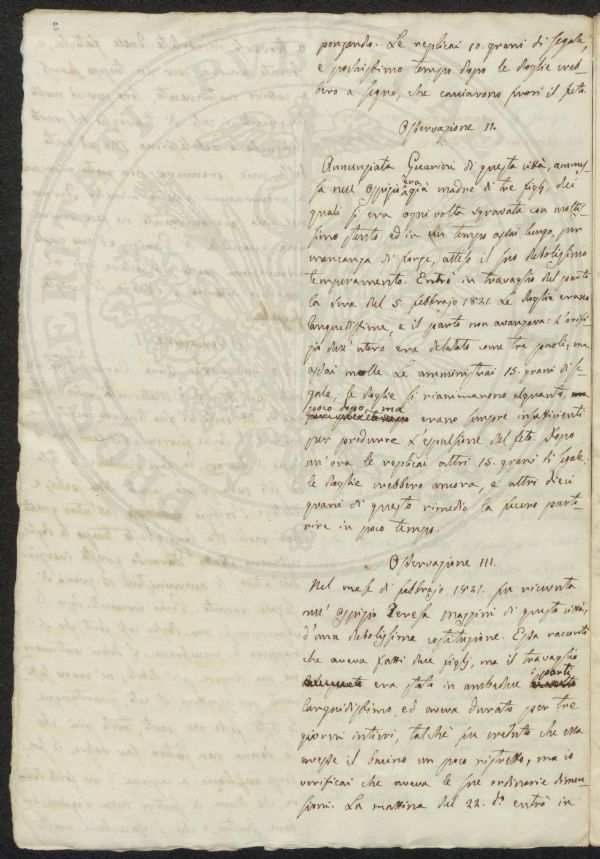 ponzando. Le replicai 10. grani di segale,
e pochissimo tempo dopo le doglie creb-
bero a segno, che cacciarono fuori il feto.
Osservazione II.
Annunziata Guarini di questa città, ammes-
sa nell' Ospizio era già madre di tre figlj, dei
quali si era ogni volta sgravata con moltis-
simo stento ed in un tempo assai lungo, per
mancanza di forze, atteso il suo debolissimo
temperamento. Entrò in travaglio del parto
la sera del 5. febbrajo 1821. Le doglie erano
languidissime, e il parto non avanzava: L'orifi-
zio dell' utero era dilatato come tre paoli, ma
assai molle. Le amministrai 15. grani di se-
gale; le doglie si rianimarono alquanto,
poco dopo, ma
erano sempre insufficienti
per produrre l'espulsione del feto. Dopo
un'ora le replicai altri 15. grani di segale,
le doglie crebbero ancora, e altri dieci
grani di questo rimedio la fecero parto-
rire in poco tempo.
Osservazione III.
Nel mese di febbrajo 1821. fu ricevuta
nell' Ospizio Teresa Mazzini di questa città,
d'una debolissima costituzione. Essa raccontò
che aveva fatti due figlj, ma il travaglio
era stato in ambedue i parti
languidissimo, ed aveva durato per tre
giorni intieri, talchè fu creduto che essa
avesse il bacino un poco ristretto, ma io
verificai che aveva le sue ordinarie dimen-
sioni. La mattina del 22. do. entrò in